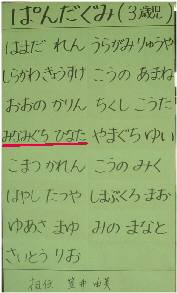 ぱんだぐみ(3歳児)
はまだ れん うらがみ りゅうや
しらかわ きょうすけ こうの あまね
おおの かりん ちくし こうた
みなみぐち ひなた やまぐち ゆい
こまつ かれん こうの みく
はやし たつや しまぶくろ まお
ゆあさ まゆ みの まなと
さいとう りお
担任 笠井 由美